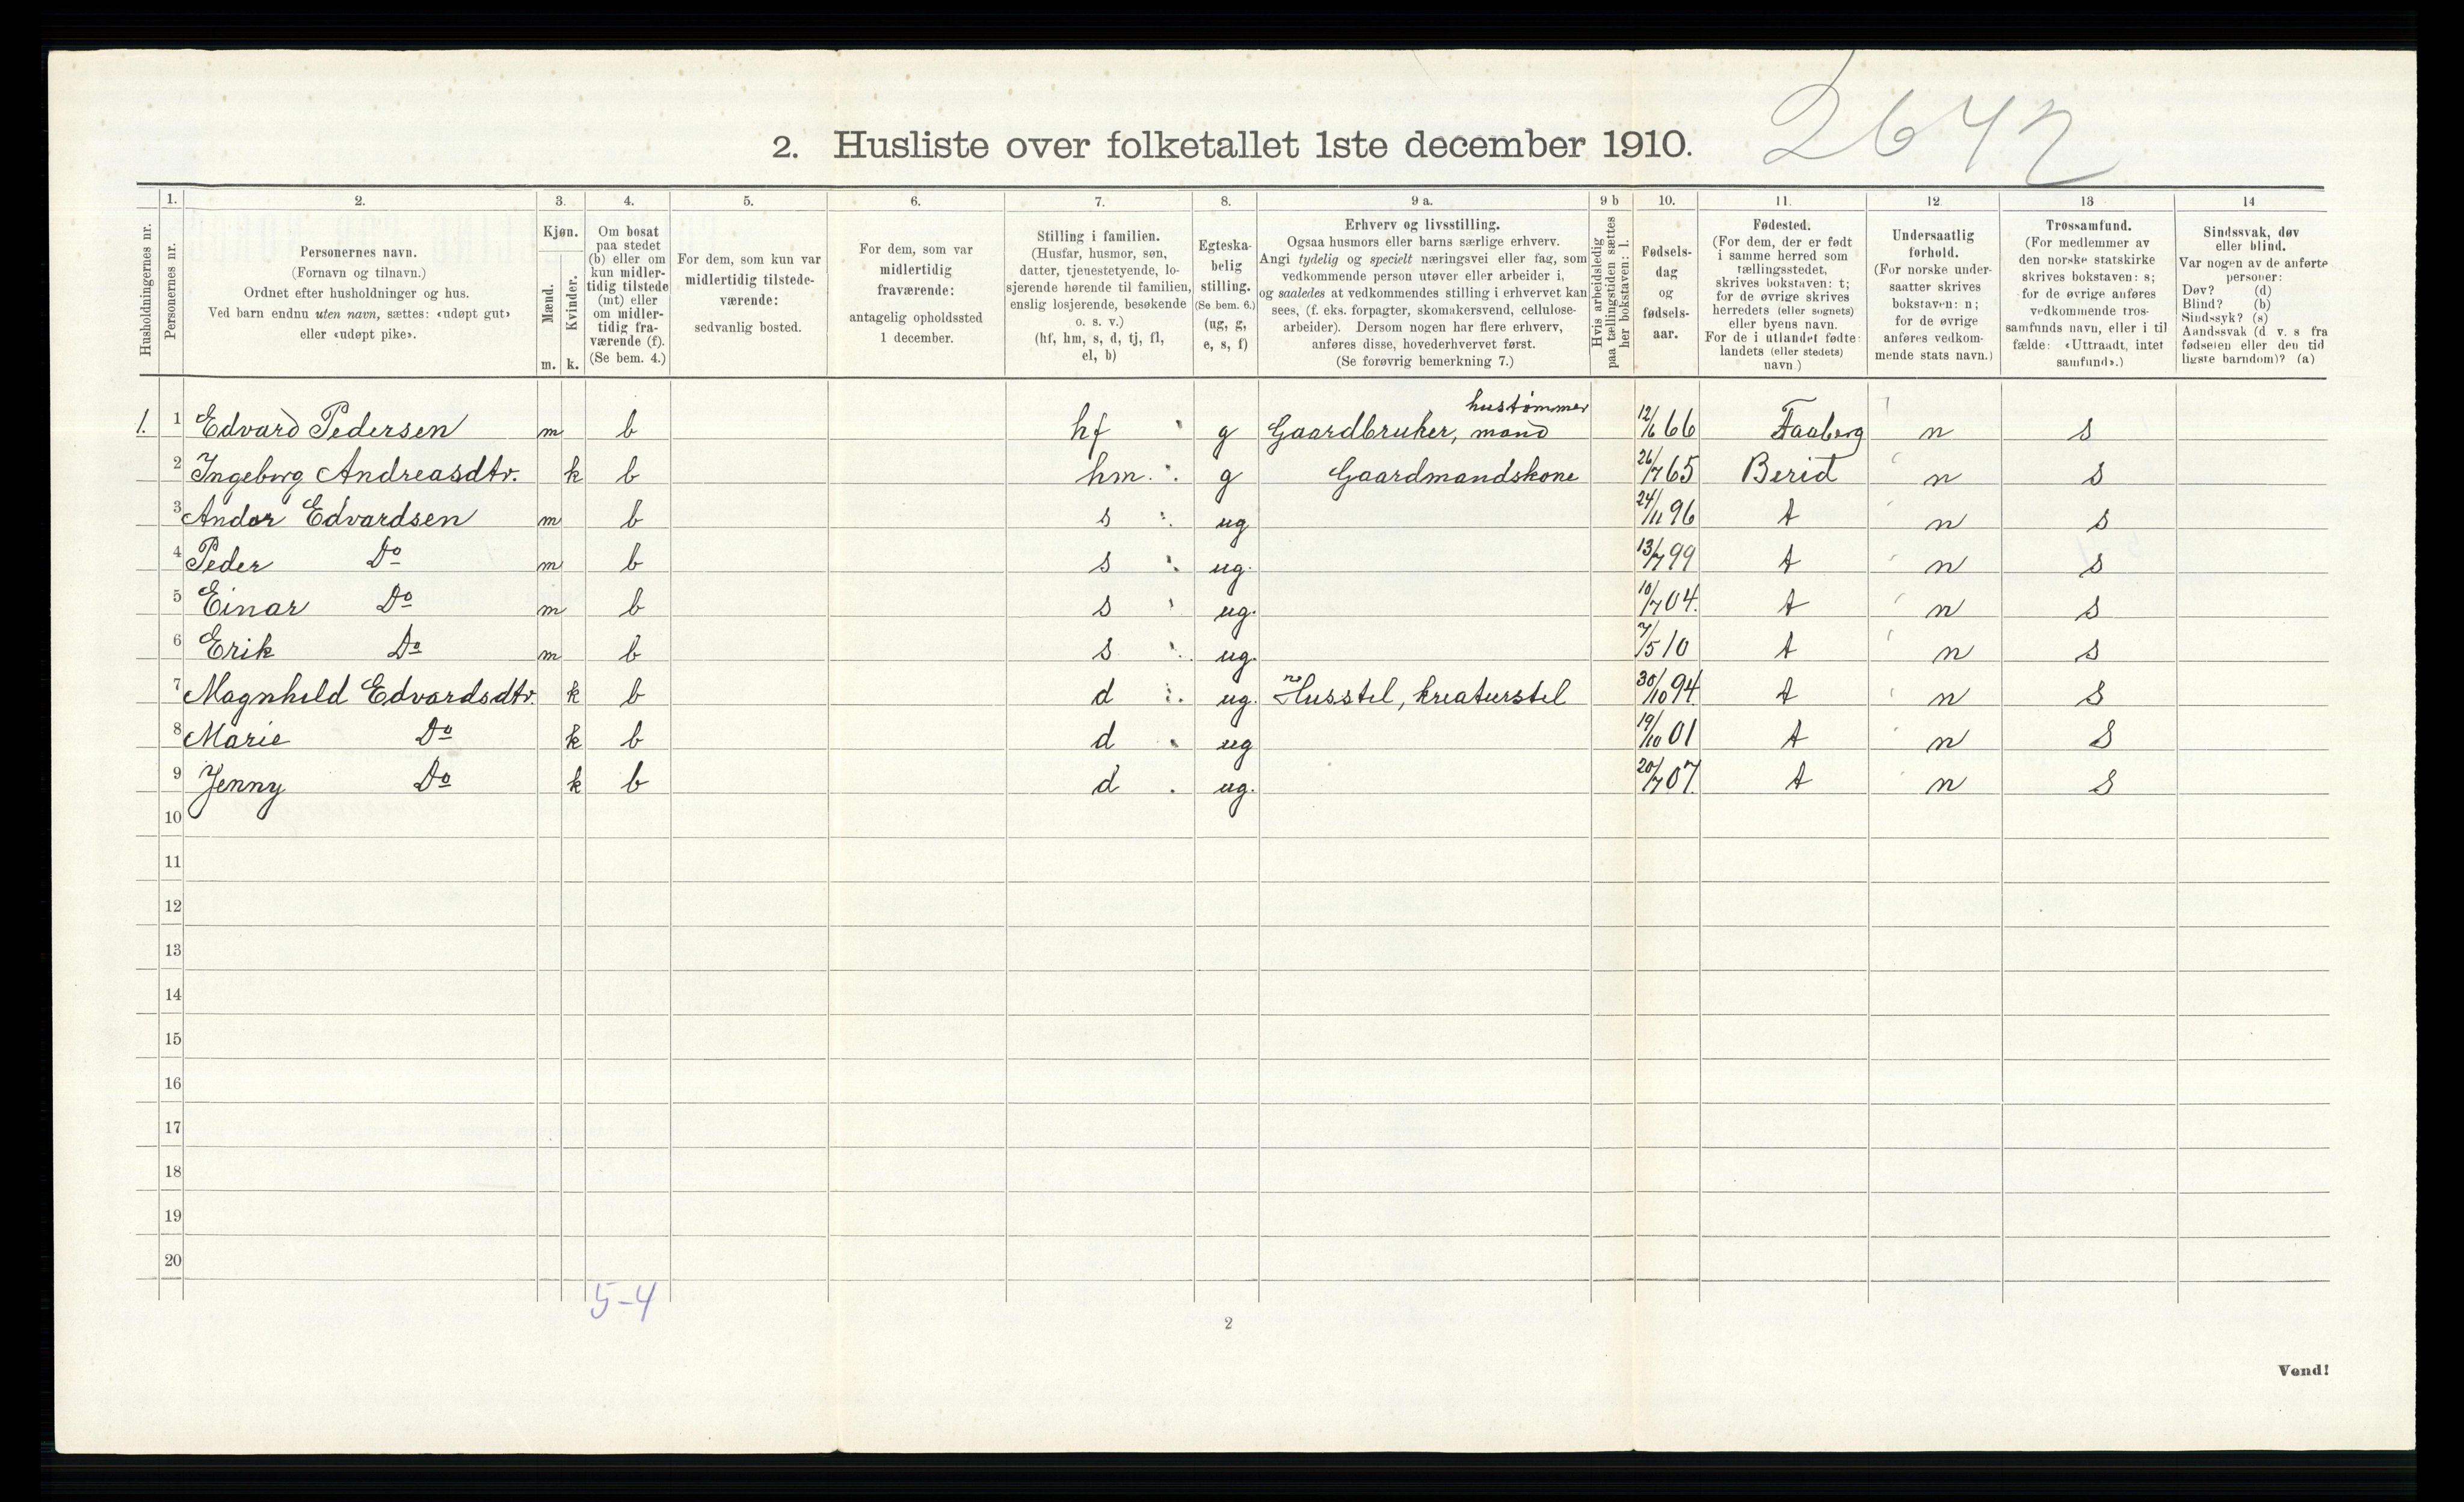 2642
2. Husliste over folketallet 1ste december 1910.
Husholdningernes nr.
1. Personernes nr.
2. Personernes navn.
(Fornavn og tilnavn.)
Ordnet efter husholdninger og hus.
Ved barn endnu uten navn, sættes: «udøpt gut»
eller «udøpt pike».
3. Kjøn.
Mænd. m.
Kvinder. k.
4. Om bosat
paa stedet
(b) eller om
kun midler-
tidig tilstede
(mt) eller
om midler-
tidig fra-
værende (f).
(Se bem. 4.)
5. For dem, som kun var
midlertidig tilstede-
værende:
sedvanlig bosted.
6. For dem, som var
midlertidig
fraværende:
antagelig opholdssted
1 december.
7. Stilling i familien.
(Husfar, husmor, søn,
datter, tjenestetyende, lo-
sjerende hørende til familien,
enslig losjerende, besøkende
o. s. v.)
(hf, hm, s, d, tj, fl,
el, b)
8. Egteska-
belig
stilling.
(Se bem. 6.)
(ug, g,
e, s, f)
9 a. Erhverv og livsstilling.
Ogsaa husmors eller barns særlige erhverv.
Angi tydelig og specielt næringsvei eller fag, som
vedkommende person utøver eller arbeider i,
og saaledes at vedkommendes stilling i erhvervet kan
sees, (f. eks. forpagter, skomakersvend, cellulose-
arbeider). Dersom nogen har flere erhverv,
anføres disse, hovederhvervet først.
(Se forøvrig bemerkning 7.)
9 b Hvis arbeidsledig
paa tællingstiden sættes
her bokstaven: l.
10. Fødsels-
dag
og
fødsels-
aar.
11. Fødested.
(For dem, der er født
i samme herred som
tællingsstedet,
skrives bokstaven: t;
for de øvrige skrives
herredets (eller sognets)
eller byens navn.
For de i utlandet fødte:
landets (eller stedets)
navn.)
12. Undersaatlig
forhold.
(For norske under-
saatter skrives
bokstaven: n;
for de øvrige
anføres vedkom-
mende stats navn.)
13 Trossamfund.
(For medlemmer av
den norske statskirke
skrives bokstaven: s;
for de øvrige anføres
vedkommende tros-
samfunds navn, eller i til
fælde: «Uttraadt, intet
samfund».)
14 Sindssvak, døv
eller blind.
Var nogen av de anførte
personer:
Døv? (d)
Blind? (b)
Sindssyk? (s)
Aandssvak (d. v. s. fra
fødselen eller den tid
ligste barndom)? (a)
hustømmer
1. 1 Edvard Pedersen m b hf g Gaardbruker, mand 12/6 66 Faaberg n s
2 Ingeborg Andreasdtr. k b hm. g Gaardmandskone 26/7 65 Berid n s
3 Andor Edvardsen m b s ug 24/11 96 t n s
4 Peder Do m b s ug. 13/7 99 t n s
5 Einar Do m b s ug. 10/7 04. t n s
6 Erik Do m b s ug. 7/5 10 t n s
7 Magnhild Edvardsdtr. k b d ug. Husstel, kreaturstel 30/10 94 t n s
8 Marie Do k b d ug 19/10 01 t n s
9 Jenny Do k b d ug. 20/7 07. t n s
10
11
12
13
14
15
16
17
18
19
20
5-4
2
Vend!